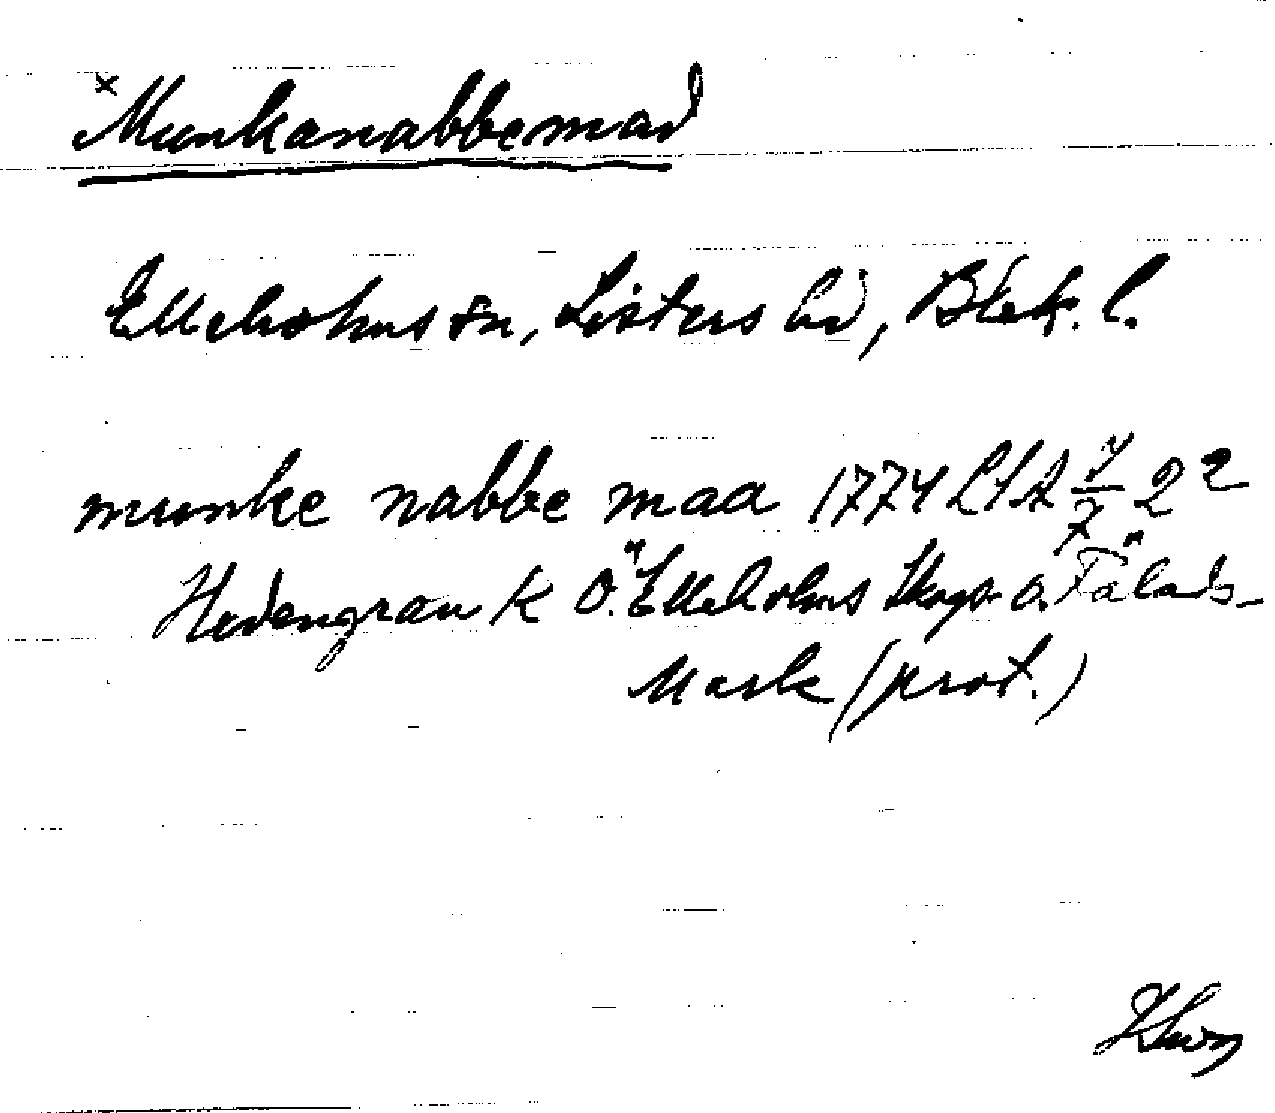 × Munkanabbemad
Elleholms sn, Listers hd, Blek. l.
munke nabbe maa 1774 LSA 7/7 2²
Hedengran K Ö. "Elleholms Skogs o. Fälads-
Mark (prot.)